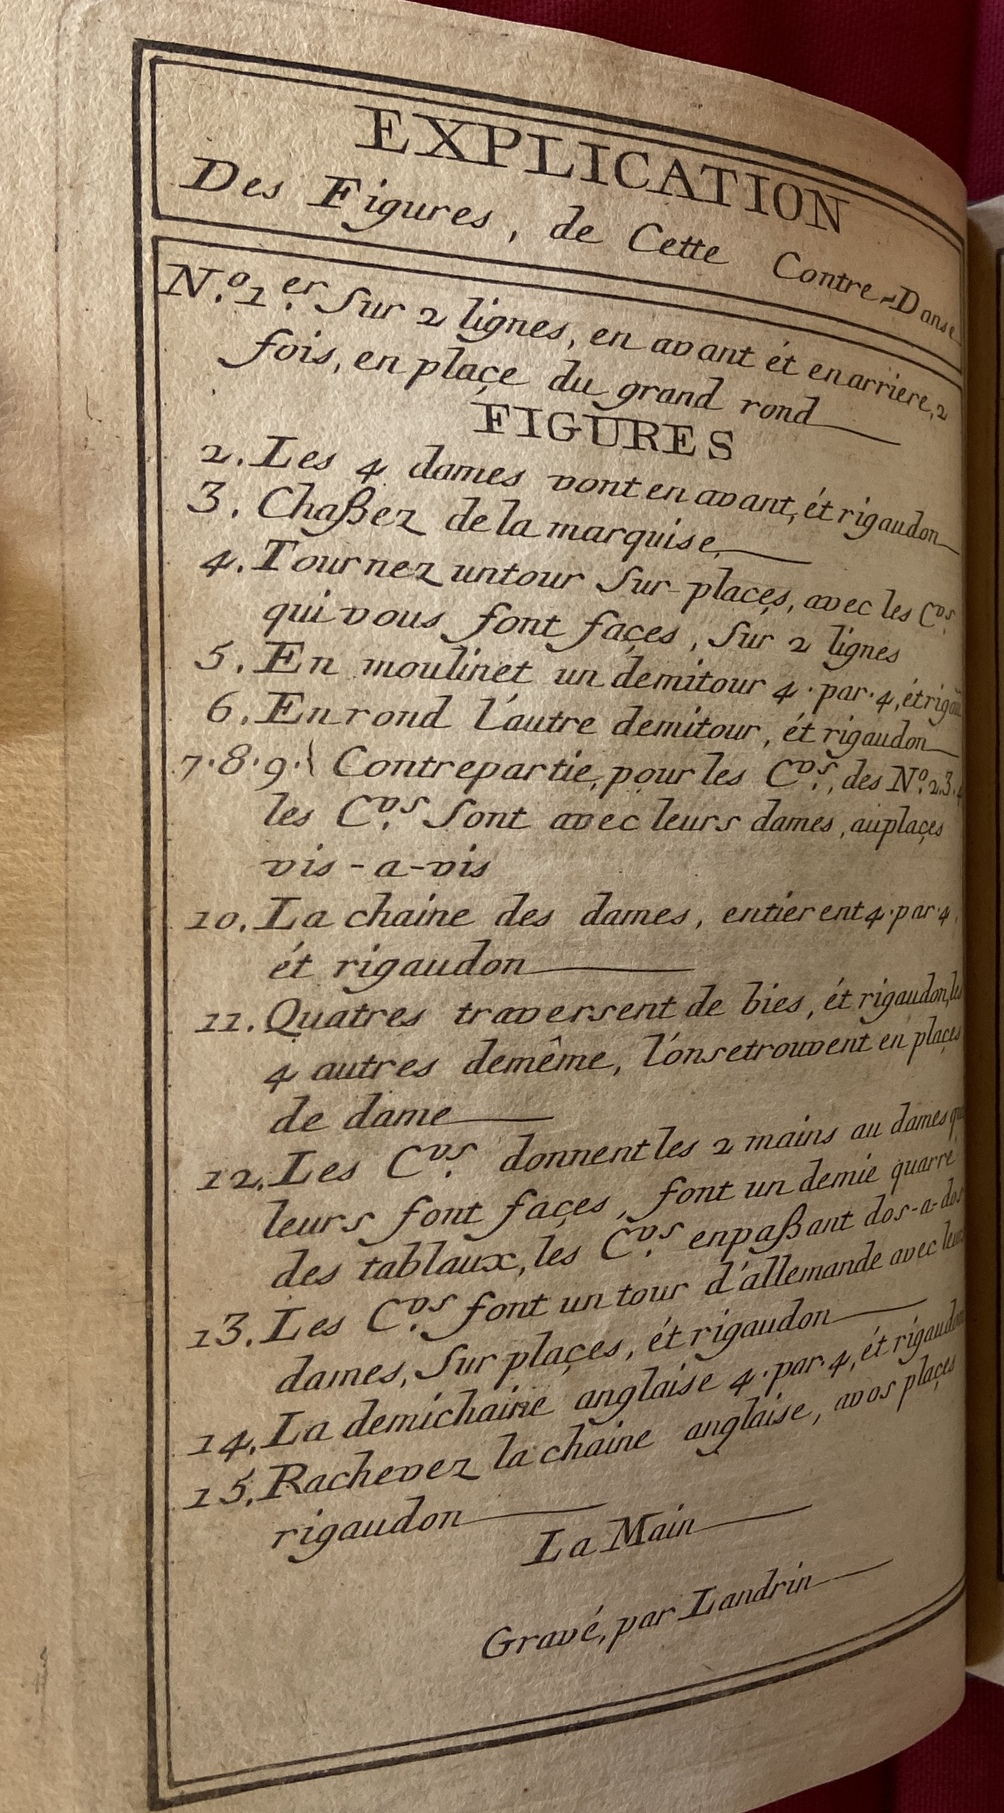 EXPLICATION
Des Figures, de Cette Contre-Danse
N.º 1.er Sur 2 lignes, en avant ét enarriere, 2
fois, en plaçe du grand rond
FIGURES
2. Les 4 dames vont en avant, ét rigaudon
3. Chaßez de la marquise,
4. Tournez untour Sur plaçes, avec les C.vs
qui vous font façes, Sur 2 lignes
5. En moulinet un demitour 4·par·4, ét
6. En rond l'autre demitour, ét rigaudon
7·8·9· Contrepartie, pour les C.vs, des N.º 2.3.
les C.vs Sont avec leurs dames, auplaçes
vis-a-vis
10. La chaine des dames, entierent 4·par·4,
ét rigaudon
11. Quatres traversent de bies, ét rigaudon, les
4 autres demême, l'onsetrouvent en plaçes
de dame
12. Les C.vs donnent les 2 mains au dames
leurs font façes, font un demie quarré
des tablaux, les C.vs enpaßant dos-a-dos
13. Les C.vs font un tour d'allemande avec leurs
dames, Sur plaçes, ét rigaudon
14. La demichaine anglaise 4·par·4, ét rigaudon
15. Rachevez la chaine anglaise, avos plaçes
rigaudon
La Main
Gravé, par Landrin